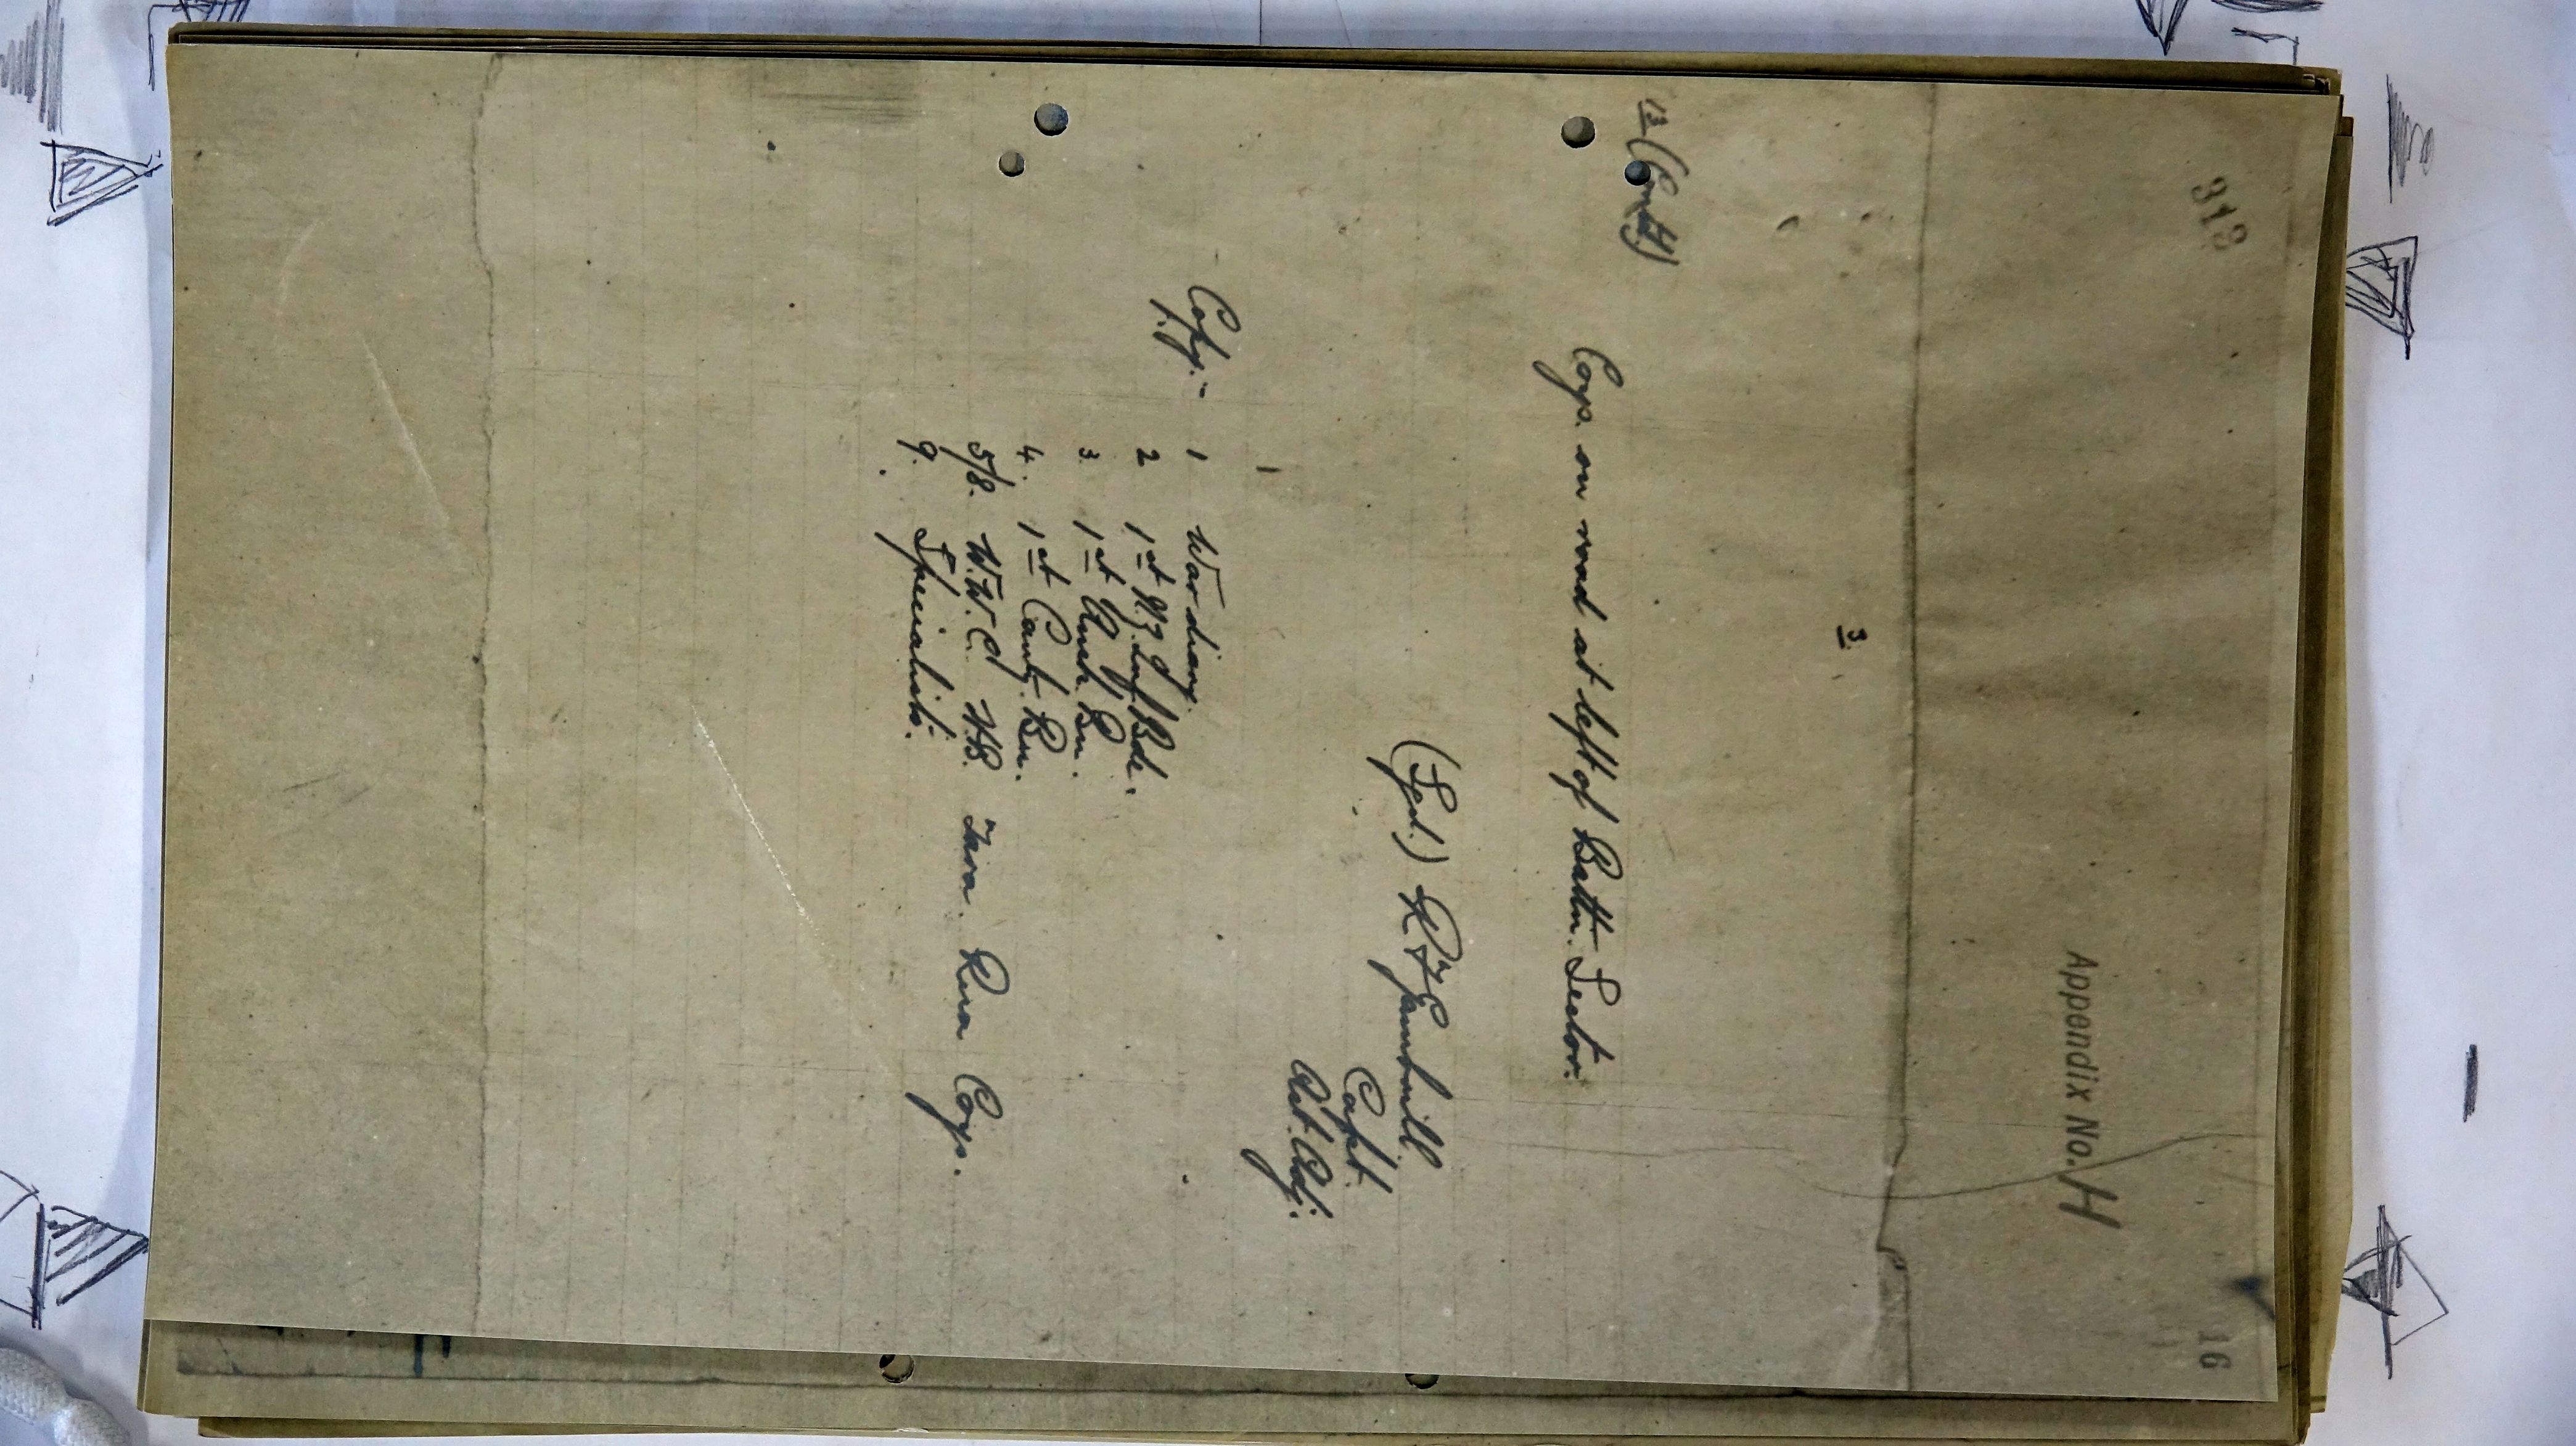 313
16
Appendix No. H
3.
13 (Contd)
Coys. on road at left of Battn. Sector.
(Sgd.)
Capt.
Act. Adj.
Copy:- 1 War diary.
2 1st N.Z. Inf Bde.
3. 1st Auck. Bn.
4. 1st Canty. Bn.
5/8. W.W.C. H.B. Tara. Rua Coys.
9. Specialists.